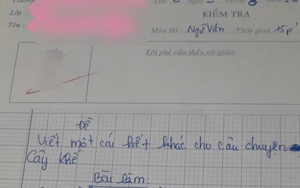 Lớp
Tên
KIỂM TRA
Môn thi: Ngữ Văn Thời gian: 15p'
Lời phê của thầy, cô giáo:
Đề
Viết một cái kết khác cho câu chuyện
Cây khế
Bài làm